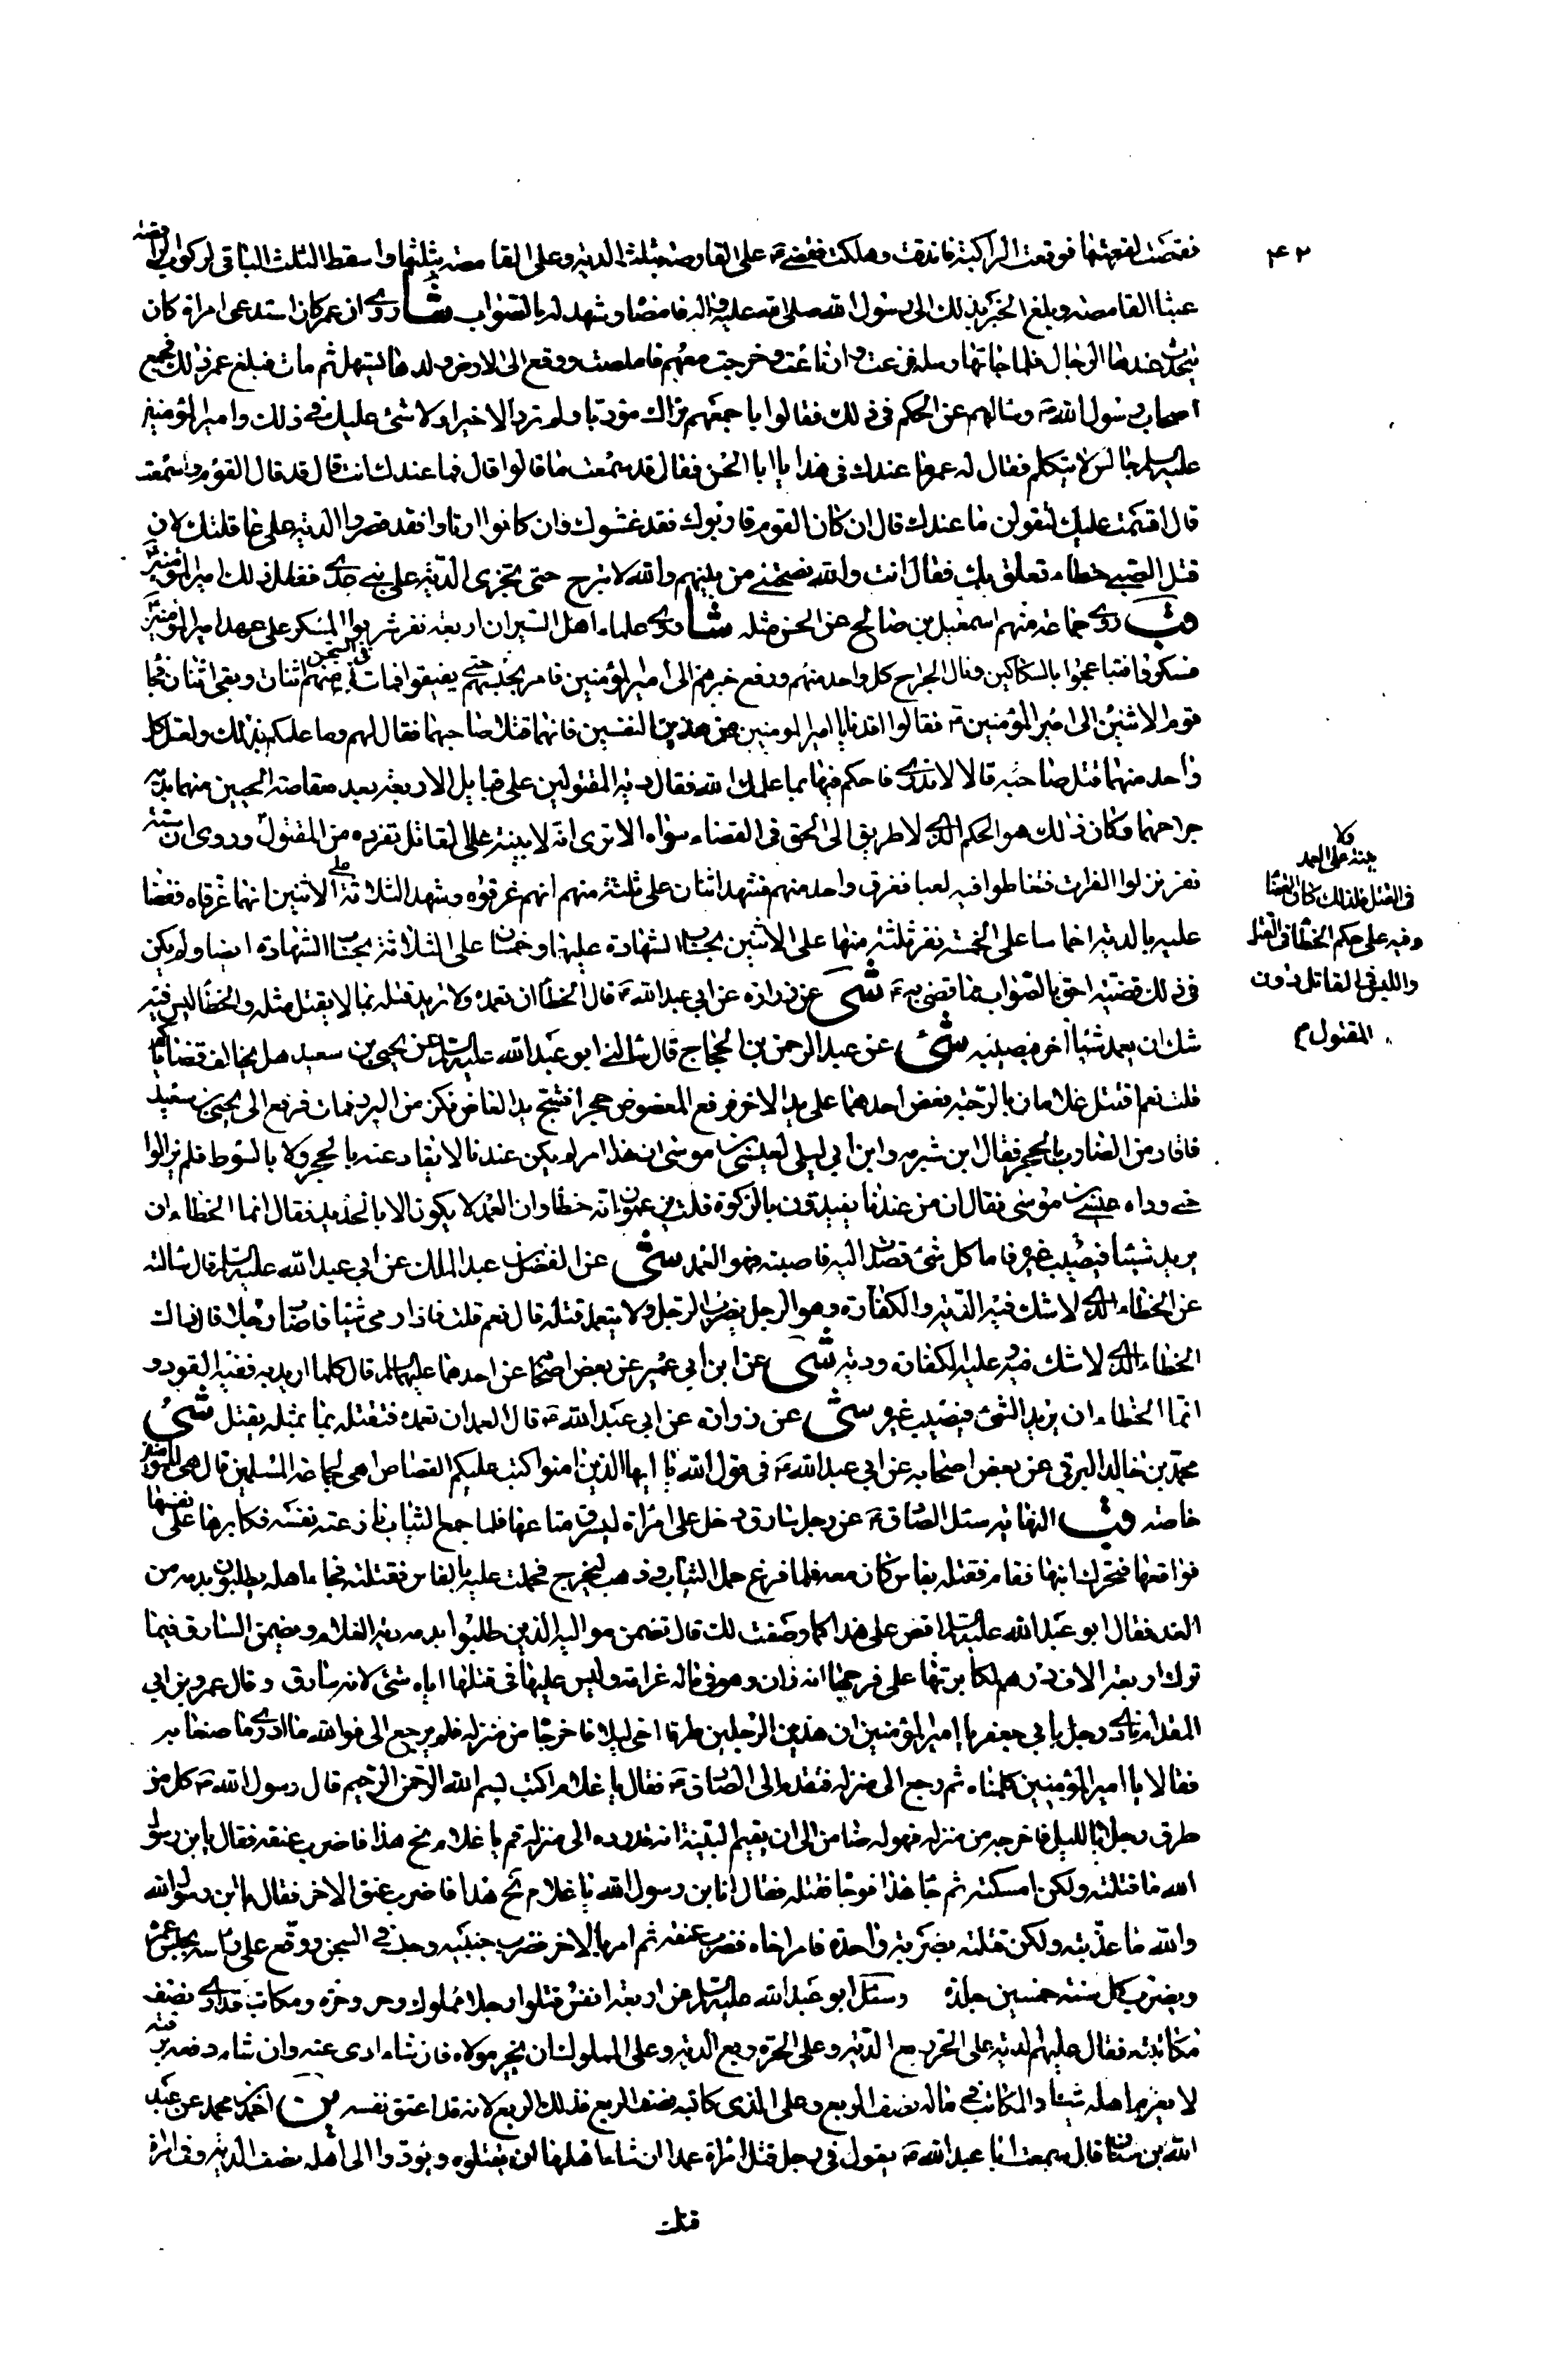 ۴۲
فقمصت لقمصتها فوقعت الراكبة فاندقت وهلكت فقضى ع على القارصة بثلث الدية وعلى القامصة بثلثها واسقط الثلث الباقى لركوب الواقصة
عبثا القامصة وبلغ الخبر بذلك الى رسول الله صلى الله عليه واله فامضاه وشهد له بالصواب شا روى ان عمر كان استدعى امراة كان
يتحدث عندها الرجال فلما جائها رسله فزعت وارتاعت وخرجت معهم فاملصت ووقع الى الارض ولدها يستهل ثم مات فبلغ عمر ذلك فجمع
اصحاب رسول الله ص وسالهم عن الحكم فى ذلك فقالوا باجمعهم نراك مؤدبا ولم ترد الا خيرا ولا شئ عليك فى ذلك وامير المؤمنين
عليه السلم جالس لا يتكلم فقال له عمر ما عندك فى هذا يا ابا الحسن فقال قد سمعت ما قالوا قال فما عندك انت قال قد قال القوم وسمعت
قال اقسمت عليك لتقولن ما عندك قال ان كان القوم قاربوك فقد غشوك وان كانوا ارتاوا فقد قصروا الدية على عاقلتك لان
قتل الصبى خطاء تعلق بك فقال انت والله نصحتنى من بينهم والله لا تبرح حتى تجزى الدية على بنى عدى ففعل ذلك امير المؤمنين ع
قب روى جماعة منهم اسمعيل بن صالح عن الحسن مثله شا روى علماء اهل السير ان اربعة نفر شربوا المسكر على عهد امير المؤمنين ع
فسكروا فتباعجوا بالسكاكين ونال الجراح كل واحد منهم ورفع خبرهم الى امير المؤمنين فامر بحبسهم حتى يفيقوا فمات فى السجن منهم اثنان وبقى اثنان فجاء
قوم الاثنين الى امير المؤمنين ع فقالوا اقدنا يا امير المومنين من هذين النفسين فانهما قتلا صاحبهما فقال لهم وما علمكم بذلك ولعل كل
واحد منهما قتل صاحبه قالا لا ندرى فاحكم فيها بما علمك الله فقال دية المقتولين على قبايل الاربعة بعد مقاصة الحيين منهما بدية
جراحهما وكان ذلك هو الحكم الذى لا طريق الى الحق فى القضاء سواه الا ترى انه لا بينة على القاتل تفرده من المقتول وروى ان ستة
نفر نزلوا الفرات فتغاطوا فيه لعبا فغرق واحد منهم فشهد اثنان على ثلثة منهم انهم غرقوه وشهد الثلاثة على الاثنين انهما غرقاه فقضا
عليه بالدية اخماسا على الخمسة نفر ثلثة منها على الاثنين بحساب الشهادة عليهما وخمسان على الثلاثة بحساب الشهادة ايضا ولم يكن
فى ذلك قضية احق بالصواب مما قضى به ع شى عن زرارة عن ابى عبد الله ع قال الخطأ ان تعمده ولا تريد قتله بما لا يقتل مثله والخطأ ليس فيه
شك ان يعمد شيئا اخر فيصيبه شى عن عبد الرحمن بن الحجاج قال سالنى ابو عبد الله عليه السلم عن يحيى بن سعيد هل يخالف قضاياكم
قلت نعم اقتتل غلامان بالرحبة فعض احدهما على يد الاخر فرفع المعضوض حجرا فشج يد العاض فكز من البرد فمات فرفع الى يحيى بن سعيد
فاقاد من الضارب بالحجر فقال ابن شبرمه وابن ابى ليلى لعيسى بن موسى ان هذا امر لم يكن عندنا لا يقاد عنه بالحجر ولا بالسوط فلم يزالوا
حتى وداه عيسى بن موسى فقال ان من عندنا يقيدون بالوكزة قلت يزعمون انه خطأ وان العمد لا يكون الا بالحديد فقال انما الخطاء ان
يريد شيئا فيصيب غيره فاما كل شئ قصدت اليه فاصبته فهو العمد شى عن الفضل بن عبد الملك عن ابى عبد الله عليه السلم قال سالته
عن الخطاء الذى لا شك فيه الدية والكفارة وهو الرجل يضرب الرجل ولا يتعمد قتله قال نعم قلت فاذا رمى شيئا فاصاب رجلا قال ذاك
الخطاء الذى لا شك فيه عليه الكفارة ودية شى عن ابن ابى عمير عن بعض اصحابنا عن احدهما عليهما السلم قال كلما اريد به ففيه القود و
انما الخطاء ان يريد الشئ فيصيب غيره شى عن زرارة عن ابى عبد الله ع قال العمد ان تعمده فتقتله بما بمثله يقتل شى
محمد بن خالد البرقى عن بعض اصحابه عن ابى عبد الله ع فى قول الله يا ايها الذين امنوا كتب عليكم القصاص اهى لجماعة المسلمين قال هى للمؤمنين
خاصة قب النهاية سئل الصادق ع عن رجل سارق دخل على امراة ليسرق متاعها فلما جمع الثياب نازعته نفسه فكابرها على نفسها
فواقعها فتحرك ابنها فقام فقتله بفاس كان معه فلما فرغ حمل الثياب وذهب ليخرج فحملت عليه بالفاس فقتلته فجاء اهله يطلبون بدمه من
الغد فقال ابو عبد الله عليه السلم اقض على هذا كما وصفت لك قال تضمن مواليه الذين طلبوا بدمه دية الغلام ويضمن السارق فيما
ترك اربعة الاف درهم لمكابرتها على فرجها انه زان وهو فى ماله غرامة وليس عليها فى قتلها اياه شئ لانه سارق وقال عمرو بن ابى
المقدام نادى رجل بابى جعفر يا امير المؤمنين ان هذين الرجلين طرقا اخى ليلا فاخرجاه من منزله فلم يرجع الى فوالله ما ادرى ما صنعا به
فقالا يا امير المؤمنين كلمناه ثم رجع الى منزله فتقدم الى الصادق ع فقال يا غلام اكتب بسم الله الرحمن الرحيم قال رسول الله ص كل من
طرق رجلا بالليل فاخرجه من منزله فهو له ضامن الى ان يقيم البينة انه قد رده الى منزله قم يا غلام نح هذا فاضرب عنقه فقال يا بن رسول
الله ما قتلته ولكن امسكته ثم جاء هذا فوجأه فقتله فقال انا بن رسول الله يا غلام نح هذا فاضرب عنق الاخر فقال يا بن رسول الله
والله ما عذبته ولكن قتلته بضربة واحدة فامر اخاه فضرب عنقه ثم امر بالاخر فضرب جنبيه وحبسه فى السجن ووقع على راسه يحبس عمره
ويضرب كل سنة خمسين جلدة وسئل ابو عبد الله عليه السلم عن اربعة انفس قتلوا رجلا مملوك وحر وحرة ومكاتب قد ادى نصف
مكاتبته فقال عليهم الدية على الحر ربع الدية وعلى الحرة ربع الدية وعلى المملوك ان يخير مولاه فان شاء ادى عنه وان شاء دفعه برمته
لا يغرم اهله شيئا والمكاتب فى ماله نصف الربع وعلى الذى كاتبه نصف الربع فذلك الربع لانه قد اعتق نفسه ين احمد بن محمد عن عبد
الله بن سنان قال سمعت ابا عبد الله ع يقول فى رجل قتل امراة عمدا ان شاء اهلها ان يقتلوه ويؤدوا الى اهله نصف الدية وفى امراة
قتلت
ولا
بينة على العمد
فى القتل فلذلك كان القضاء
فيه على حكم الخطأ فى القتل
واللبس فى القاتل دون
المقتول م